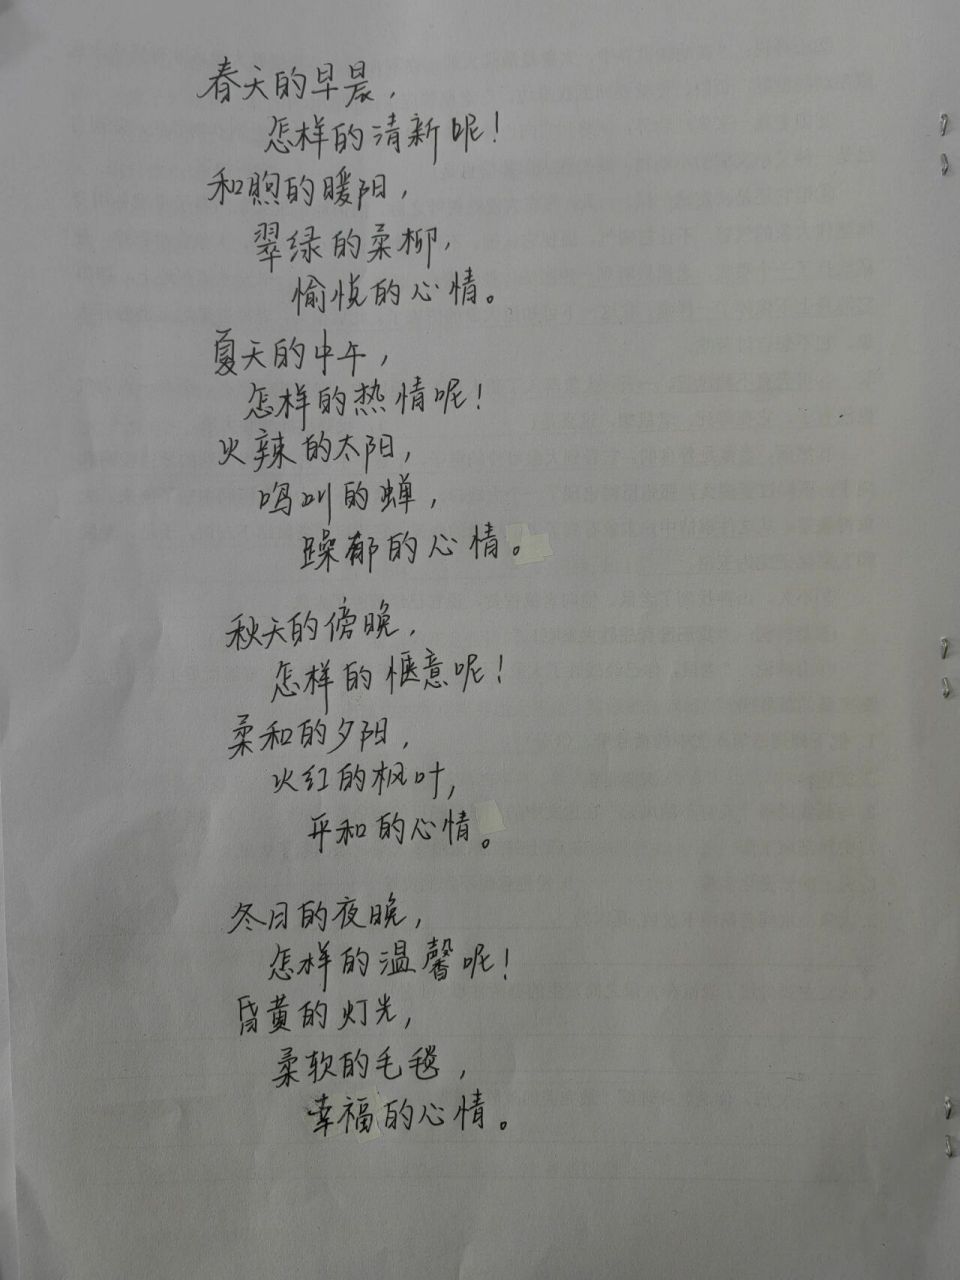 春天的早晨，
怎样的清新呢！
和煦的暖阳，
翠绿的柔柳，
愉悦的心情。
夏天的中午，
怎样的热情呢！
火辣的太阳，
鸣叫的蝉，
躁郁的心情。
秋天的傍晚，
怎样的惬意呢！
柔和的夕阳，
火红的枫叶，
平和的心情。
冬日的夜晚，
怎样的温馨呢！
昏黄的灯光，
柔软的毛毯，
幸福的心情。